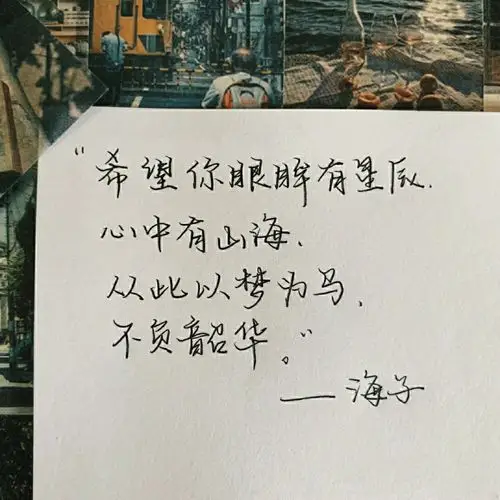 “希望你眼眸有星辰.
心中有山海.
从此以梦为马.
不负韶华。”
——海子